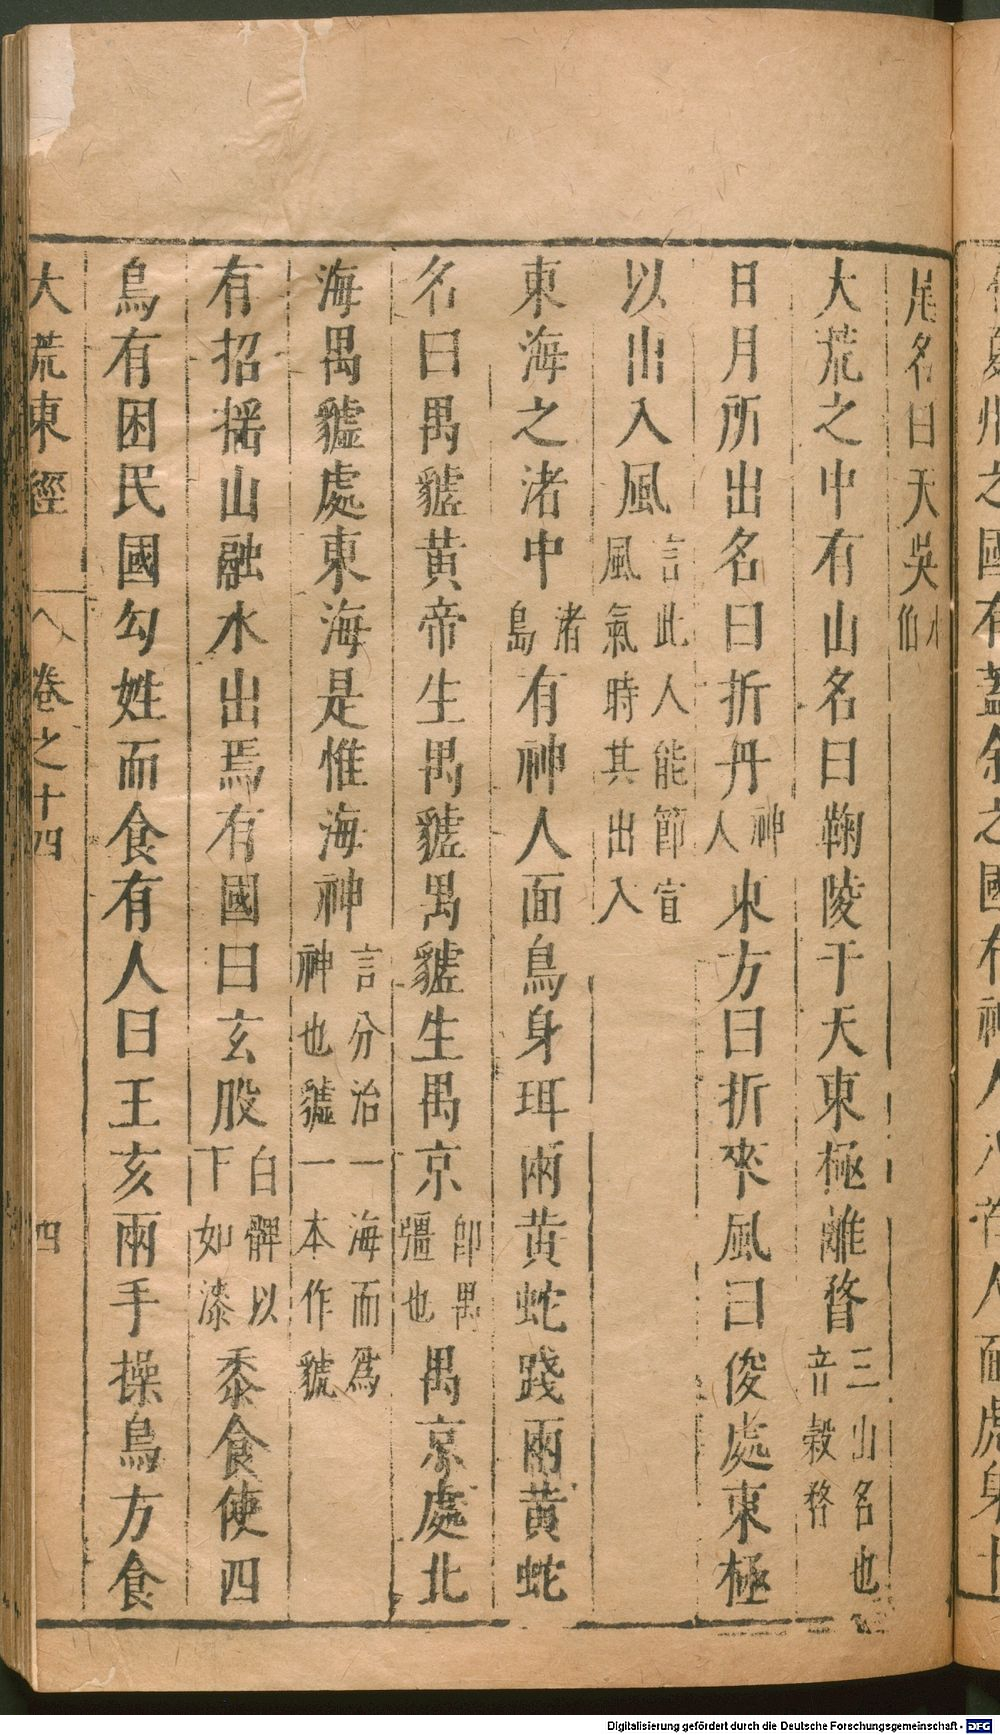 尾名曰天吳水伯
大荒之中有山名曰鞠陵于天東極離瞀三山名也音穀瞀
日月所出名曰折丹神人東方曰折來風曰俊處東極
以出入風言此人能節宣風氣時其出入
東海之渚中渚島有神人面鳥身珥兩黄蛇踐兩黄蛇
名曰禺䝞黄帝生禺䝞禺䝞生禺京即禺彊也禺京處北
海禺䝞處東海是惟海神言分治一海而爲神也䝞一本作號
有招搖山融水出焉有國曰玄股自髀以下如漆黍食使四
鳥有困民國勾姓而食有人曰王亥兩手操鳥方食
大荒東經 卷之十四 四
Digitalisierung gefördert durch die Deutsche Forschungsgemeinschaft - DFG